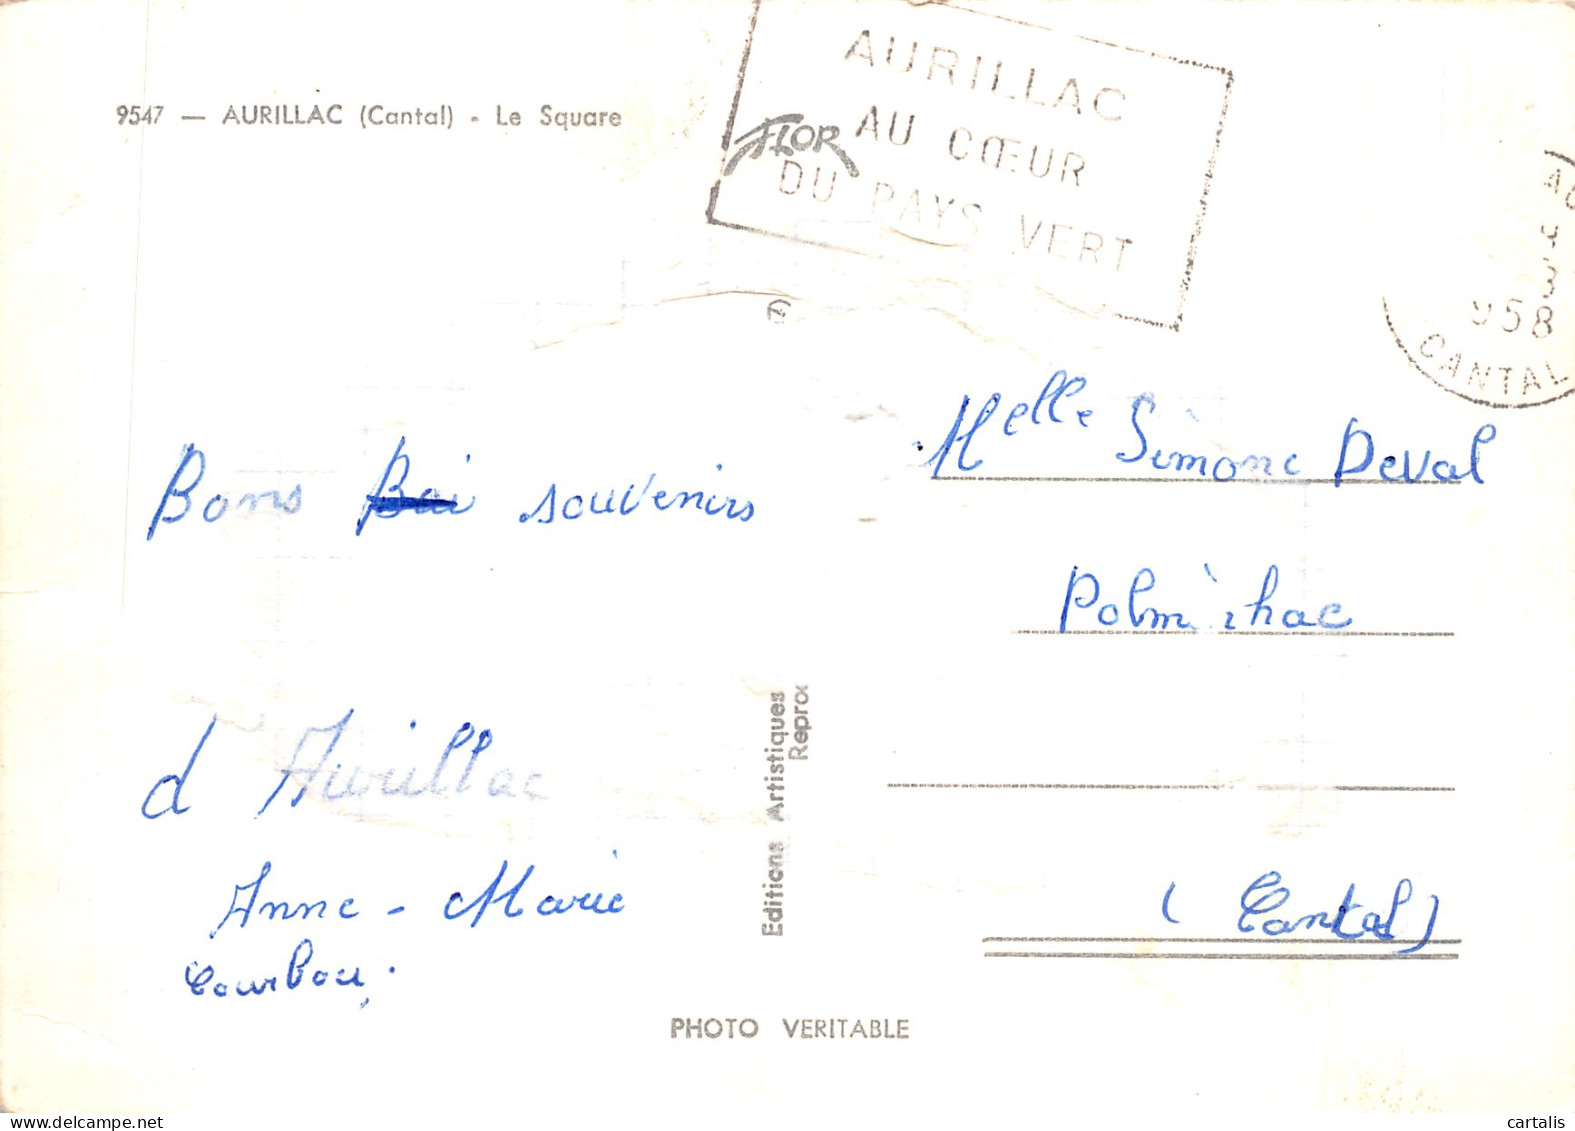 9547 — AURILLAC (Cantal) - Le Square
FLOR
AURILLAC
AU CŒUR
DU PAYS VERT
958
CANTAL
(7)
Bons Bai souvenirs
d'Aurillac
Anne-Marie
Melle Simone Deval
Polminhac
(Cantal)
Editions Artistiques
PHOTO VERITABLE
delcampe.net
cartalis